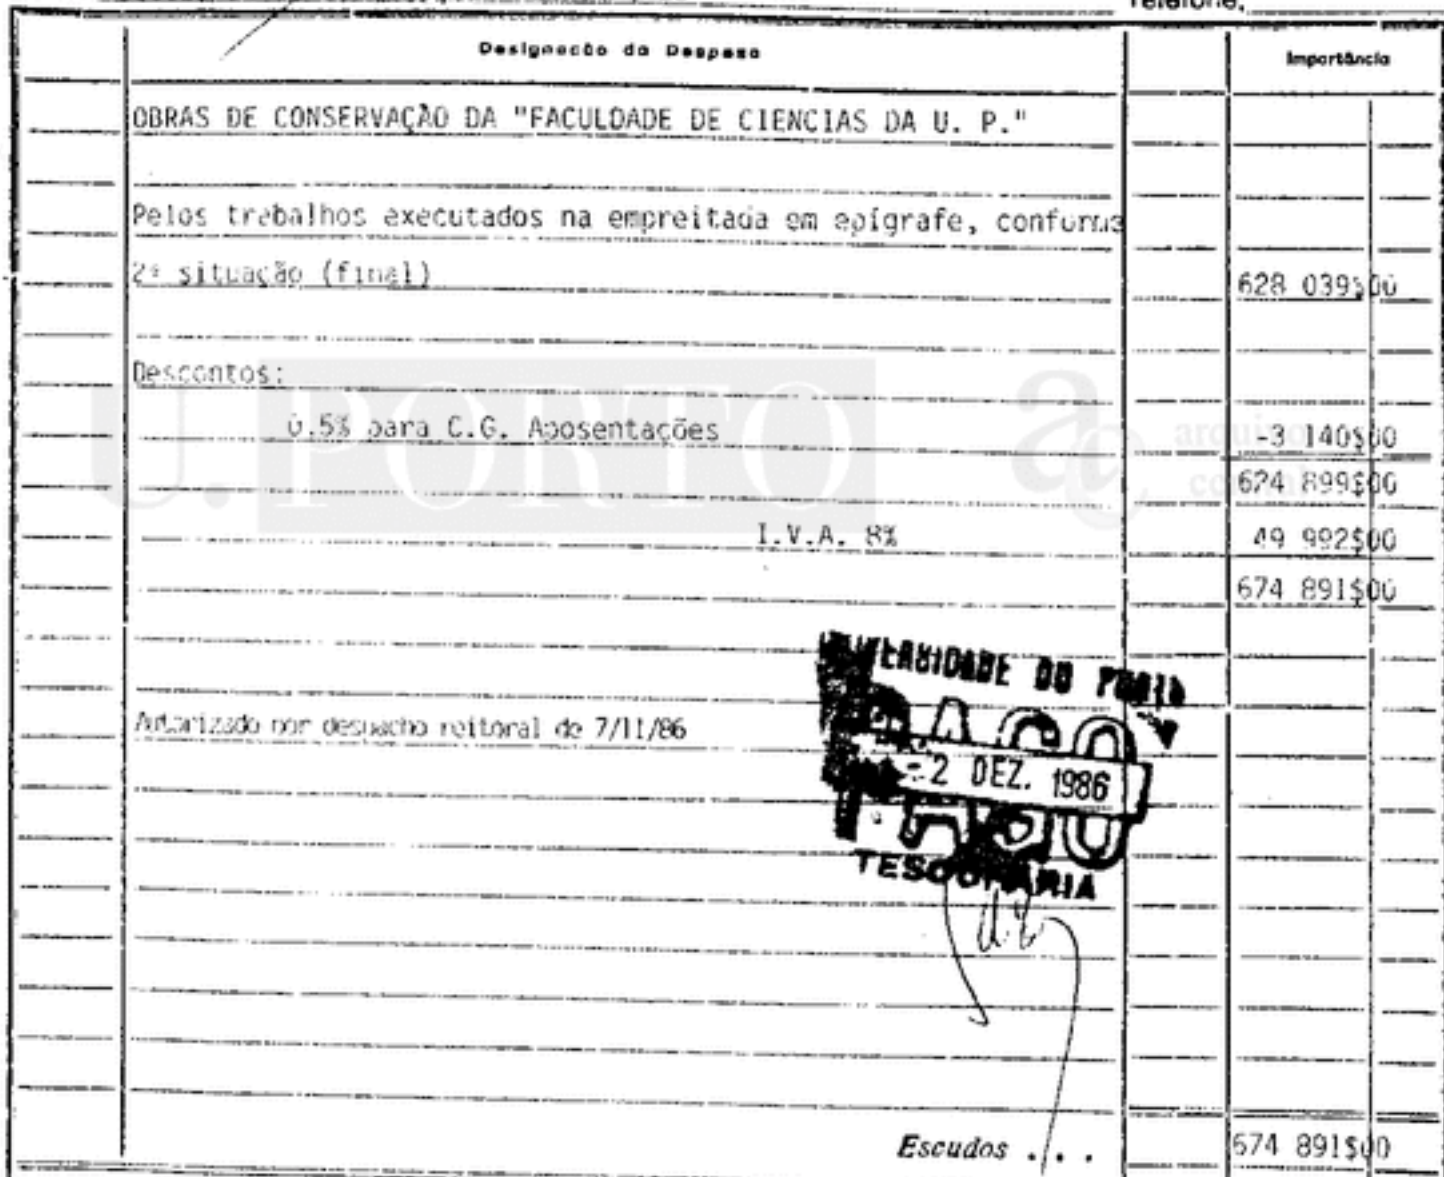 Telefone,
Designação da Despesa
Importância
OBRAS DE CONSERVAÇÃO DA "FACULDADE DE CIENCIAS DA U. P."
Pelos trabalhos executados na empreitada em epígrafe, conforme
2ª situação (final) 628 039$00
Descontos:
0.5% para C.G. Aposentações -3 140$00
624 899$00
I.V.A. 8% 49 992$00
674 891$00
Autorizado por despacho reitoral de 7/11/86
UNIVERSIDADE DO PORTO
PAGO
-2 DEZ. 1986
PAGO
TESOURARIA
Escudos . . . 674 891$00
U. PORTO